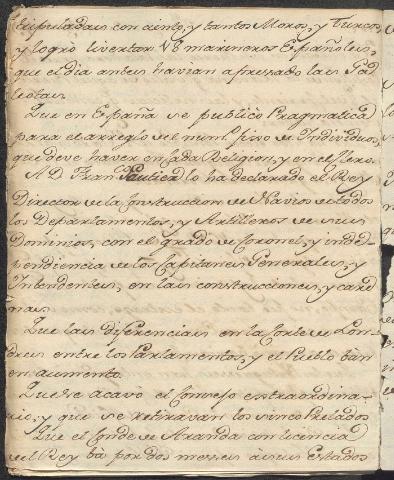 tripuladas con ciento, y tantos Moros, y Turcos
y logró livertar 48 marineros Españoles,
que el dia antes havian apressado las Ga
leotas.
Que en España se publicó Pragmatica
para el arreglo del num.º fixo de Individuos,
que deve haver en cada Religion, y en el Clero.
A D. Fran.co Gautier lo ha declarado el Rey
Director de la Construccion de Navios de todos
los Departamentos, y Astilleros de sus
Dominios, con el grado de Coronel, y inde-
pendiencia de los Capitanes Generales, y
Intendentes, en las construcciones, y care
nas.
Que las diferencias en la Corte de Lon
dres entre los Parlamentos, y el Pueblo ban
en aumento.
Que se acavó el Consejo extraordina
rio; y que se retiravan los cinco Prelados
Que el Conde de Aranda con licencia
del Rey bà por dos meses à sus Estados